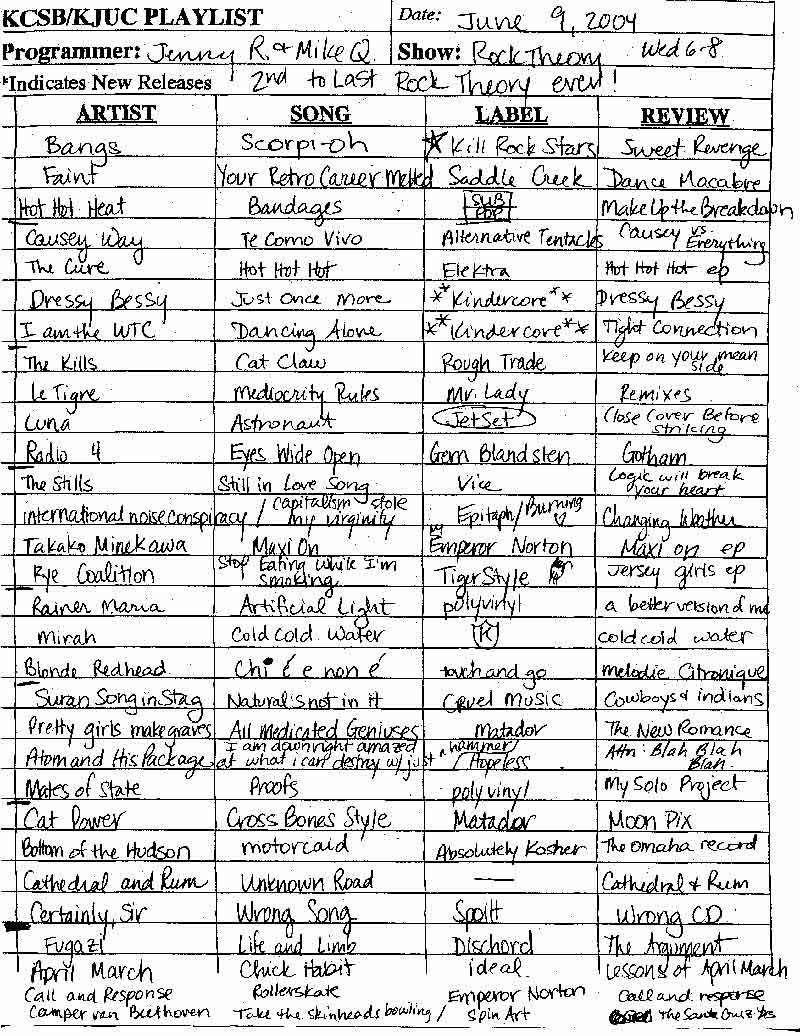 KCSB/KJUC PLAYLIST Date: June 9, 2004
Programmer: Jenny R. & Mike Q Show: Rock Theory Wed 6-8
*Indicates New Releases 2nd to Last Rock Theory ever!
ARTIST SONG LABEL REVIEW
Bangs Scorpi-oh * Kill Rock Stars Sweet Revenge
Faint Your Retro Career Melted Saddle Creek Dance Macabre
Hot Hot Heat Bandages SUB POP Make Up the Breakdown
Causey Way Te Como Vivo Alternative Tentacles Causey vs. Everything
The Cure Hot Hot Hot Elektra Hot Hot Hot ep
Dressy Bessy Just Once More ** Kindercore ** Dressy Bessy
I am the WTC Dancing Alone ** Kindercore ** Tight Connection
The Kills Cat Claw Rough Trade Keep on your mean side
Le Tigre Mediocrity Rules Mr. Lady Remixes
Luna Astronaut JetSet Close Cover Before Striking
Radio 4 Eyes Wide Open Gern Blandsten Gotham
The Stills Still in Love Song Vice Logic will break your heart
international noise conspiracy / capitalism stole my virginity Epitaph/Burning Changing Weather
Takako Minekawa Maxi On Emperor Norton Maxi on ep
Rye Coalition Stop Eating While I'm Smoking Tiger Style Jersey girls ep
Rainer Maria Artificial Light polyvinyl a better version of me
Mirah Cold cold water K cold cold water
Blonde Redhead Chi é e non é touch and go Melodie Citronique
Suran Song in Stag Natural's not in it Cruel Music Cowboys & indians
Pretty girls make graves All Medicated Geniuses Matador The New Romance
Atom and His Package I am downright amazed at what i can destroy w/ just a hammer/ / Hopeless Attn: Blah Blah Blah
Mates of State Proofs polyvinyl My Solo Project
Cat Power Cross Bones Style Matador Moon Pix
Bottom of the Hudson motorcaid Absolutely Kosher The omaha record
Cathedral and Rum Unknown Road — Cathedral & Rum
Certainly, Sir Wrong Song Spoilt Wrong CD
Fugazi Life and Limb Dischord The Argument
April March Chick Habit ideal Lessons of April March
Call and Response Rollerskate Emperor Norton Call and response
Camper van Beethoven Take the skinheads bowling / Spin Art The Santa Cruz